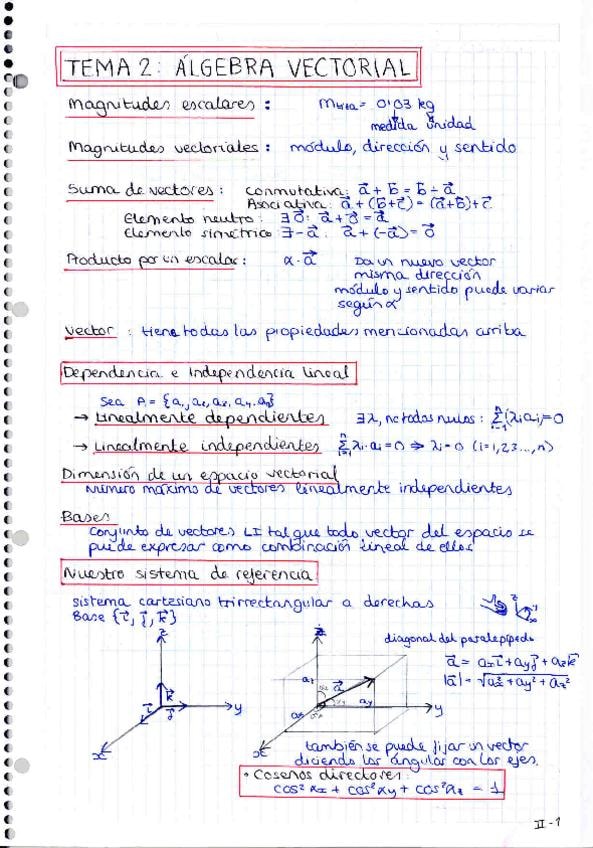 TEMA 2: ÁLGEBRA VECTORIAL
Magnitudes escalares: m = 0'03 kg
medida unidad
Magnitudes vectoriales: módulo, dirección y sentido
Suma de vectores: Conmutativa: a⃗ + b⃗ = b⃗ + a⃗
Asociativa: a⃗ + (b⃗+c⃗) = (a⃗+b⃗)+c⃗
Elemento neutro: ∃ 0⃗: a⃗ + 0⃗ = a⃗
Elemento simétrico: ∃ -a⃗: a⃗ + (-a⃗) = 0⃗
Producto por un escalar: α·a⃗ Da un nuevo vector
misma dirección
módulo y sentido puede variar
según α
Vector: tiene todas las propiedades mencionadas arriba
Dependencia e Independencia lineal
Sea A = {a₁, a₂, a₃, a₄...aₙ}
→ Linealmente dependientes ∃ λᵢ no todos nulos: Σ(λᵢaᵢ)=0
→ Linealmente independientes Σλᵢ·aᵢ=0 ⇒ λᵢ=0 (i=1,2,3...,n)
Dimensión de un espacio vectorial
Número máximo de vectores linealmente independientes
Bases
Conjunto de vectores LI tal que todo vector del espacio se
puede expresar como combinación lineal de ellos
Nuestro sistema de referencia
Sistema cartesiano trirrectangular a derechas
Base {i⃗, j⃗, k⃗}
z
k⃗
i⃗ j⃗ y
x
z
a_z a⃗
a_x a_y y
x
diagonal del paralepípedo
a⃗ = aₓi⃗ + a_yj⃗ + a_zk⃗
|a⃗| = √(aₓ² + a_y² + a_z²)
también se puede fijar un vector
diciendo los ángulos con los ejes.
• Cosenos directores:
cos²αₓ + cos²α_y + cos²α_z = 1
II-1